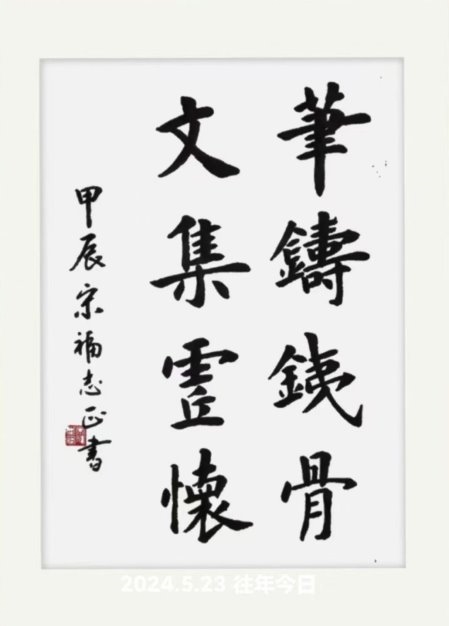 筆鑄銕骨
文集霊懷
甲辰宗福志正書
2024.5.23 往年今日